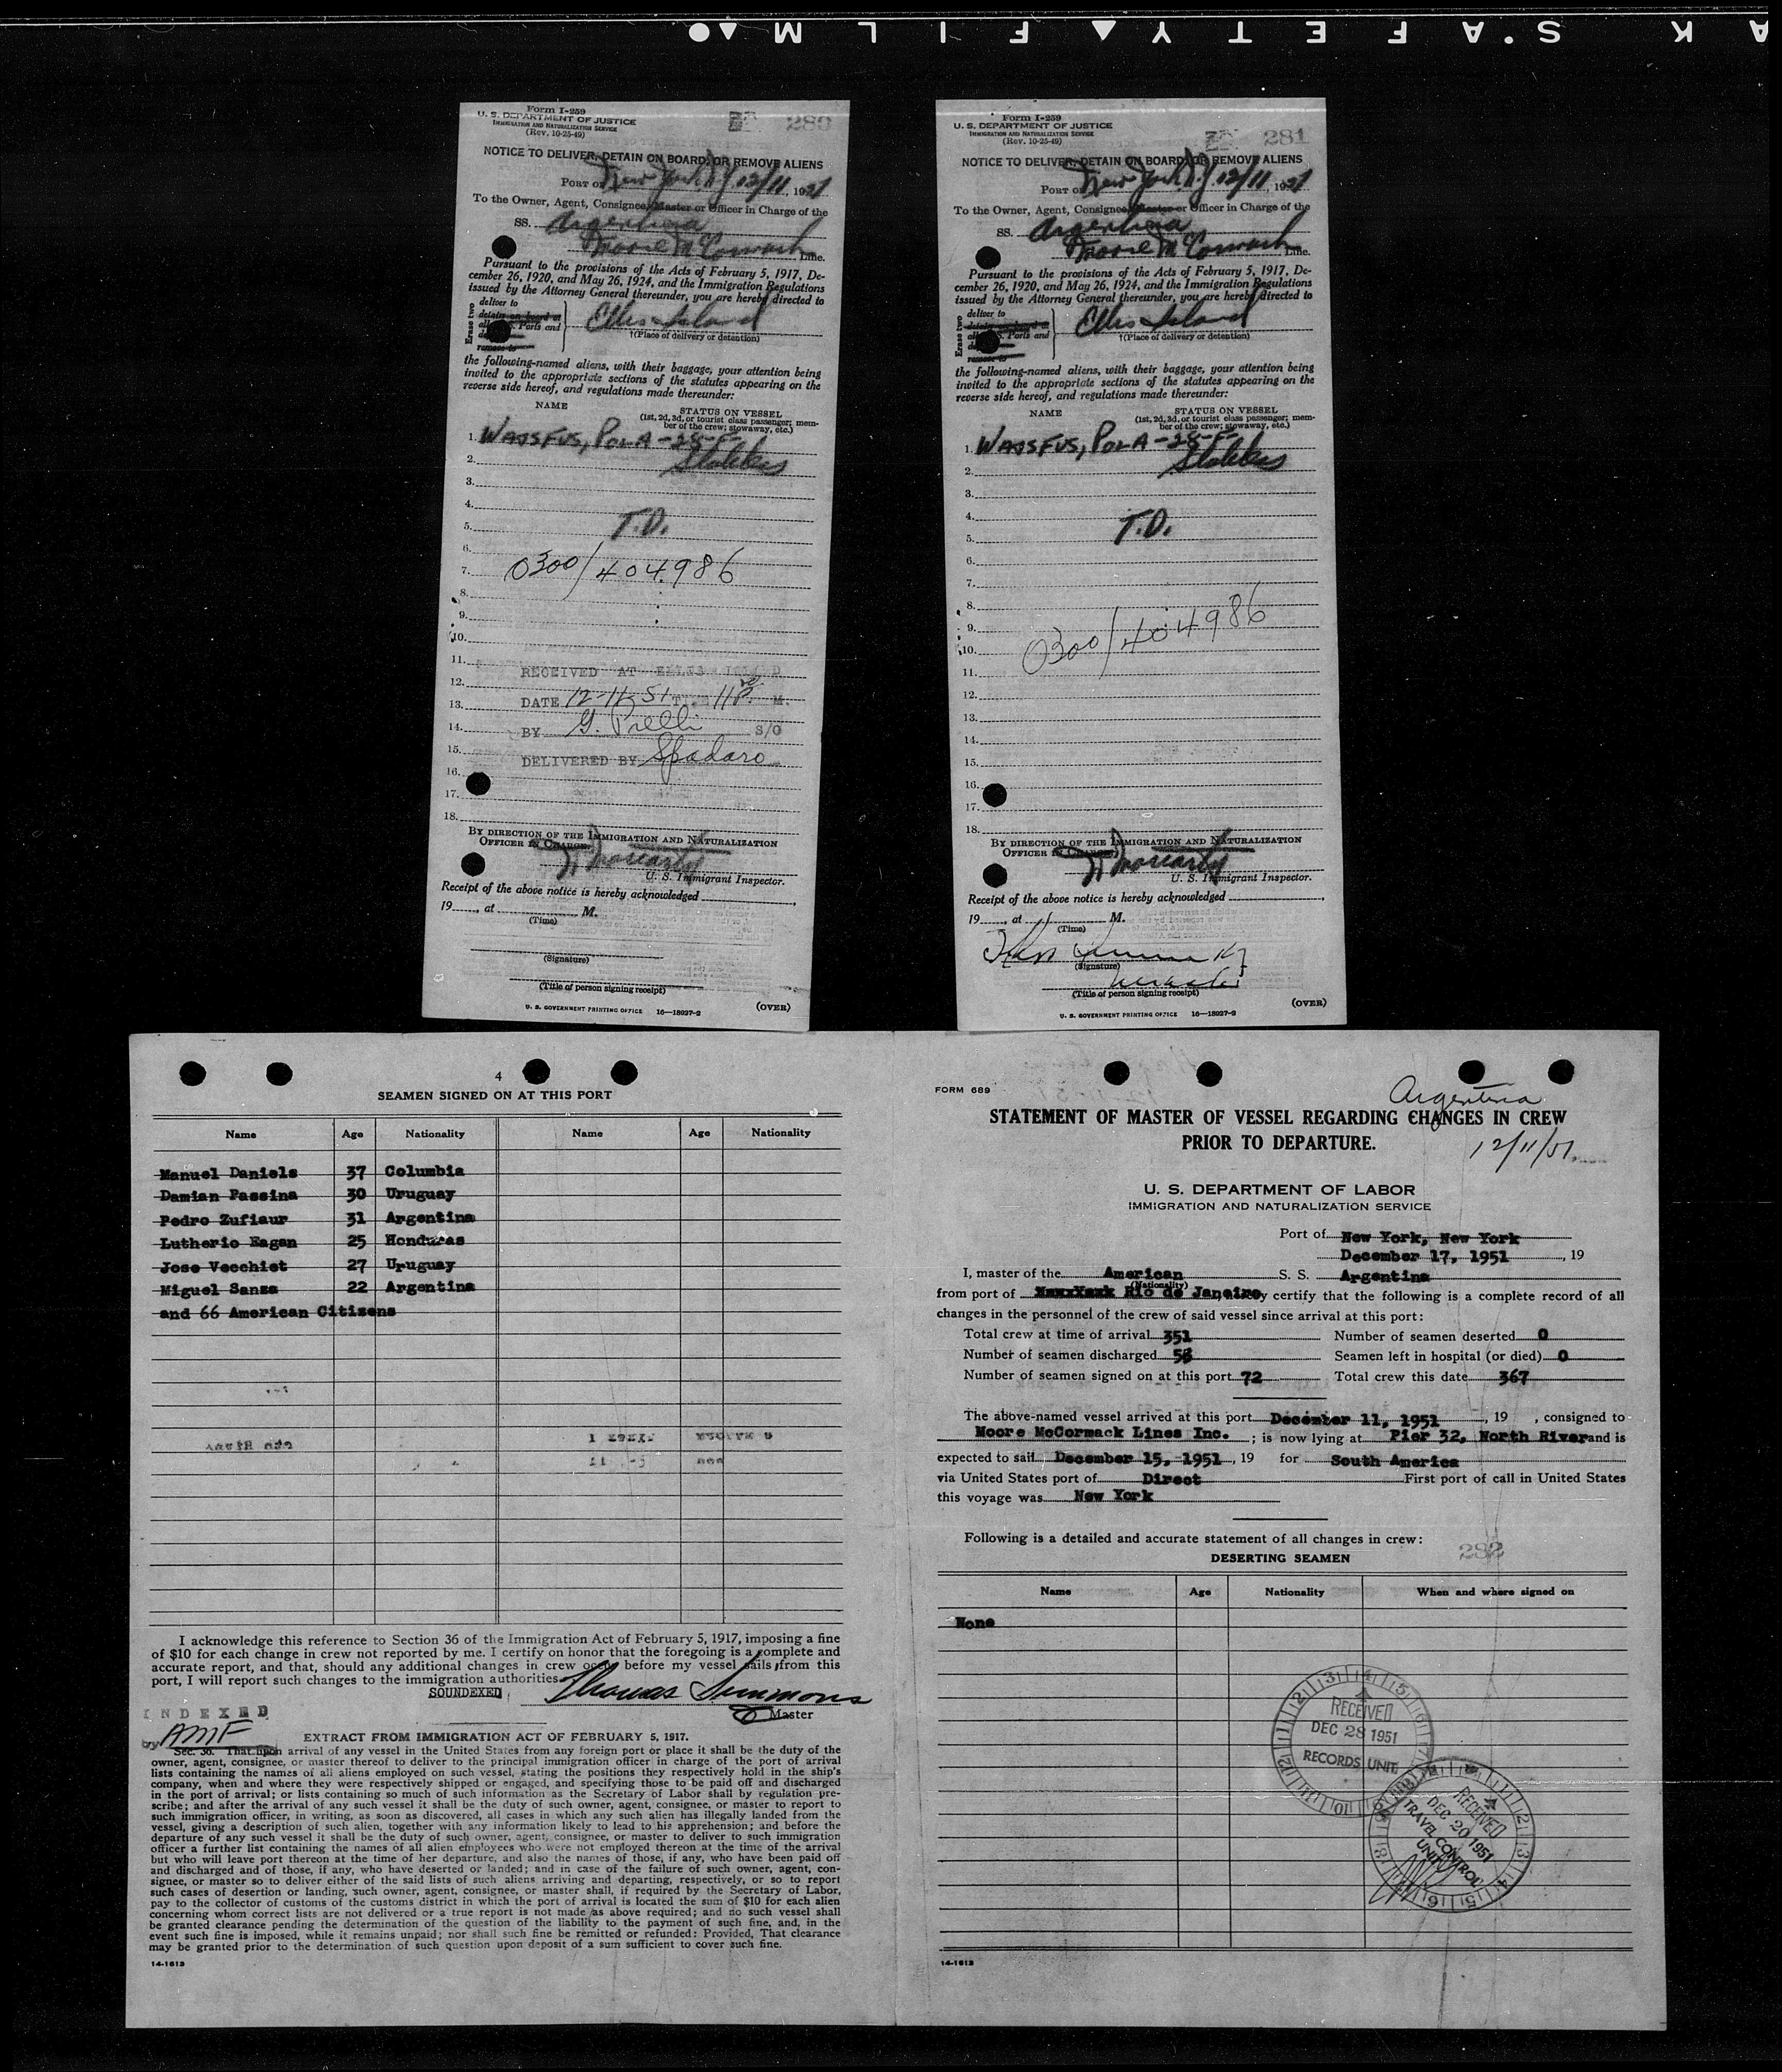 K S'AFETY FILM
Form I-259
U. S. DEPARTMENT OF JUSTICE
IMMIGRATION AND NATURALIZATION SERVICE
(Rev. 10-25-49)
NOTICE TO DELIVER, DETAIN ON BOARD, OR REMOVE ALIENS
PORT OF New York N.Y. 12/11, 1951
To the Owner, Agent, Consignee, Master or Officer in Charge of the
SS. Argentina
Moore McCormack Line.
Pursuant to the provisions of the Acts of February 5, 1917, De-
cember 26, 1920, and May 26, 1924, and the Immigration Regulations
issued by the Attorney General thereunder, you are hereby directed to
Erase two
deliver to
detain on board at
all U. S. Ports and
remove to
Ellis Island
†(Place of delivery or detention)
the following-named aliens, with their baggage, your attention being
invited to the appropriate sections of the statutes appearing on the
reverse side hereof, and regulations made thereunder:
NAME STATUS ON VESSEL
(1st, 2d, 3d, or tourist class passenger; mem-
ber of the crew; stowaway, etc.)
1. WAJSFUS, POLA - 28-F-
2.
3.
4.
5. T.D.
6.
7. 0300/404986
8.
9.
10.
11. RECEIVED AT ELLIS ISLAND
12.
13. DATE 12-11-51 11 P. M.
14. BY G. Prelli S/O
15. DELIVERED BY Spadaro
16.
17.
18.
BY DIRECTION OF THE IMMIGRATION AND NATURALIZATION
OFFICER IN CHARGE:
Moriarty
U. S. Immigrant Inspector.
Receipt of the above notice is hereby acknowledged
19 , at M.
(Time)
(Signature)
(Title of person signing receipt)
U. S. GOVERNMENT PRINTING OFFICE 16—18927-2 (OVER)
Form I-259
281
U. S. DEPARTMENT OF JUSTICE
IMMIGRATION AND NATURALIZATION SERVICE
(Rev. 10-25-49)
NOTICE TO DELIVER, DETAIN ON BOARD, OR REMOVE ALIENS
PORT OF New York N.Y. 12/11, 1951
To the Owner, Agent, Consignee, Master or Officer in Charge of the
SS. Argentina
Moore McCormack Line.
Pursuant to the provisions of the Acts of February 5, 1917, De-
cember 26, 1920, and May 26, 1924, and the Immigration Regulations
issued by the Attorney General thereunder, you are hereby directed to
Erase two
deliver to
detain on board at
all U. S. Ports and
remove to
Ellis Island
†(Place of delivery or detention)
the following-named aliens, with their baggage, your attention being
invited to the appropriate sections of the statutes appearing on the
reverse side hereof, and regulations made thereunder:
NAME STATUS ON VESSEL
(1st, 2d, 3d, or tourist class passenger; mem-
ber of the crew; stowaway, etc.)
1. WAJSFUS, POLA - 28-F-
2.
3.
4. T.D.
5.
6.
7.
8.
9. 0300/404986
10.
11.
12.
13.
14.
15.
16.
17.
18.
BY DIRECTION OF THE IMMIGRATION AND NATURALIZATION
OFFICER IN CHARGE:
Moriarty
U. S. Immigrant Inspector.
Receipt of the above notice is hereby acknowledged
19 , at 11 M.
(Time)
(Signature)
(Title of person signing receipt)
U. S. GOVERNMENT PRINTING OFFICE 16—18927-2 (OVER)
4
SEAMEN SIGNED ON AT THIS PORT
Name Age Nationality Name Age Nationality
Manuel Daniels 37 Columbia
Damian Passina 30 Uruguay
Pedro Zufiaur 31 Argentina
Lutherio Eagan 25 Honduras
Jose Vecchiet 27 Uruguay
Miguel Sanza 22 Argentina
and 66 American Citizens
I acknowledge this reference to Section 36 of the Immigration Act of February 5, 1917, imposing a fine
of $10 for each change in crew not reported by me. I certify on honor that the foregoing is a complete and
accurate report, and that, should any additional changes in crew occur before my vessel sails from this
port, I will report such changes to the immigration authorities.
SOUNDEXED
Thomas Simmons
Master
INDEXED
by AMF
EXTRACT FROM IMMIGRATION ACT OF FEBRUARY 5, 1917.
Sec. 36. That upon arrival of any vessel in the United States from any foreign port or place it shall be the duty of the
owner, agent, consignee, or master thereof to deliver to the principal immigration officer in charge of the port of arrival
lists containing the names of all aliens employed on such vessel, stating the positions they respectively hold in the ship's
company, when and where they were respectively shipped or engaged, and specifying those to be paid off and discharged
in the port of arrival; or lists containing so much of such information as the Secretary of Labor shall by regulation pre-
scribe; and after the arrival of any such vessel it shall be the duty of such owner, agent, consignee, or master to report to
such immigration officer, in writing, as soon as discovered, all cases in which any such alien has illegally landed from the
vessel, giving a description of such alien, together with any information likely to lead to his apprehension; and before the
departure of any such vessel it shall be the duty of such owner, agent, consignee, or master to deliver to such immigration
officer a further list containing the names of all alien employees who were not employed thereon at the time of the arrival
but who will leave port thereon at the time of her departure, and also the names of those, if any, who have been paid off
and discharged and of those, if any, who have deserted or landed; and in case of the failure of such owner, agent, con-
signee, or master so to deliver either of the said lists of such aliens arriving and departing, respectively, or so to report
such cases of desertion or landing, such owner, agent, consignee, or master shall, if required by the Secretary of Labor,
pay to the collector of customs of the customs district in which the port of arrival is located the sum of $10 for each alien
concerning whom correct lists are not delivered or a true report is not made as above required; and no such vessel shall
be granted clearance pending the determination of the question of the liability to the payment of such fine, and, in the
event such fine is imposed, while it remains unpaid; nor shall such fine be remitted or refunded: Provided, That clearance
may be granted prior to the determination of such question upon deposit of a sum sufficient to cover such fine.
14-1613
FORM 689
Argentina
STATEMENT OF MASTER OF VESSEL REGARDING CHANGES IN CREW
PRIOR TO DEPARTURE.
12/11/51
U. S. DEPARTMENT OF LABOR
IMMIGRATION AND NATURALIZATION SERVICE
Port of New York, New York
December 17, 1951, 19
I, master of the American S. S. Argentina
(Nationality)
from port of Rio de Janeiro certify that the following is a complete record of all
changes in the personnel of the crew of said vessel since arrival at this port:
Total crew at time of arrival 351 Number of seamen deserted 0
Number of seamen discharged 56 Seamen left in hospital (or died) 0
Number of seamen signed on at this port 72 Total crew this date 367
The above-named vessel arrived at this port December 11, 1951, 19 , consigned to
Moore McCormack Lines Inc. ; is now lying at Pier 32, North River and is
expected to sail December 15, 1951, 19 for South America
via United States port of Direct First port of call in United States
this voyage was New York
Following is a detailed and accurate statement of all changes in crew:
282
DESERTING SEAMEN
Name Age Nationality When and where signed on
None
RECEIVED
DEC 28 1951
RECORDS UNIT
RECEIVED
DEC 20 1951
TRAVEL CONTROL
UNIT
14-1613